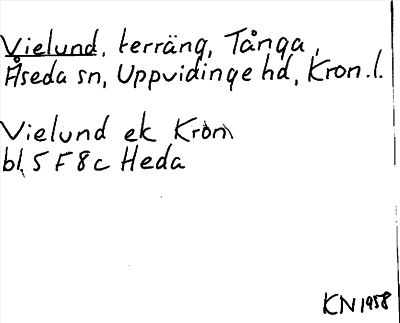 Vielund, terräng, Tånga,
Åseda sn, Uppvidinge hd, Kron.l.
Vielund ek Kron
bl. 5 F 8 c Heda
KN 1958